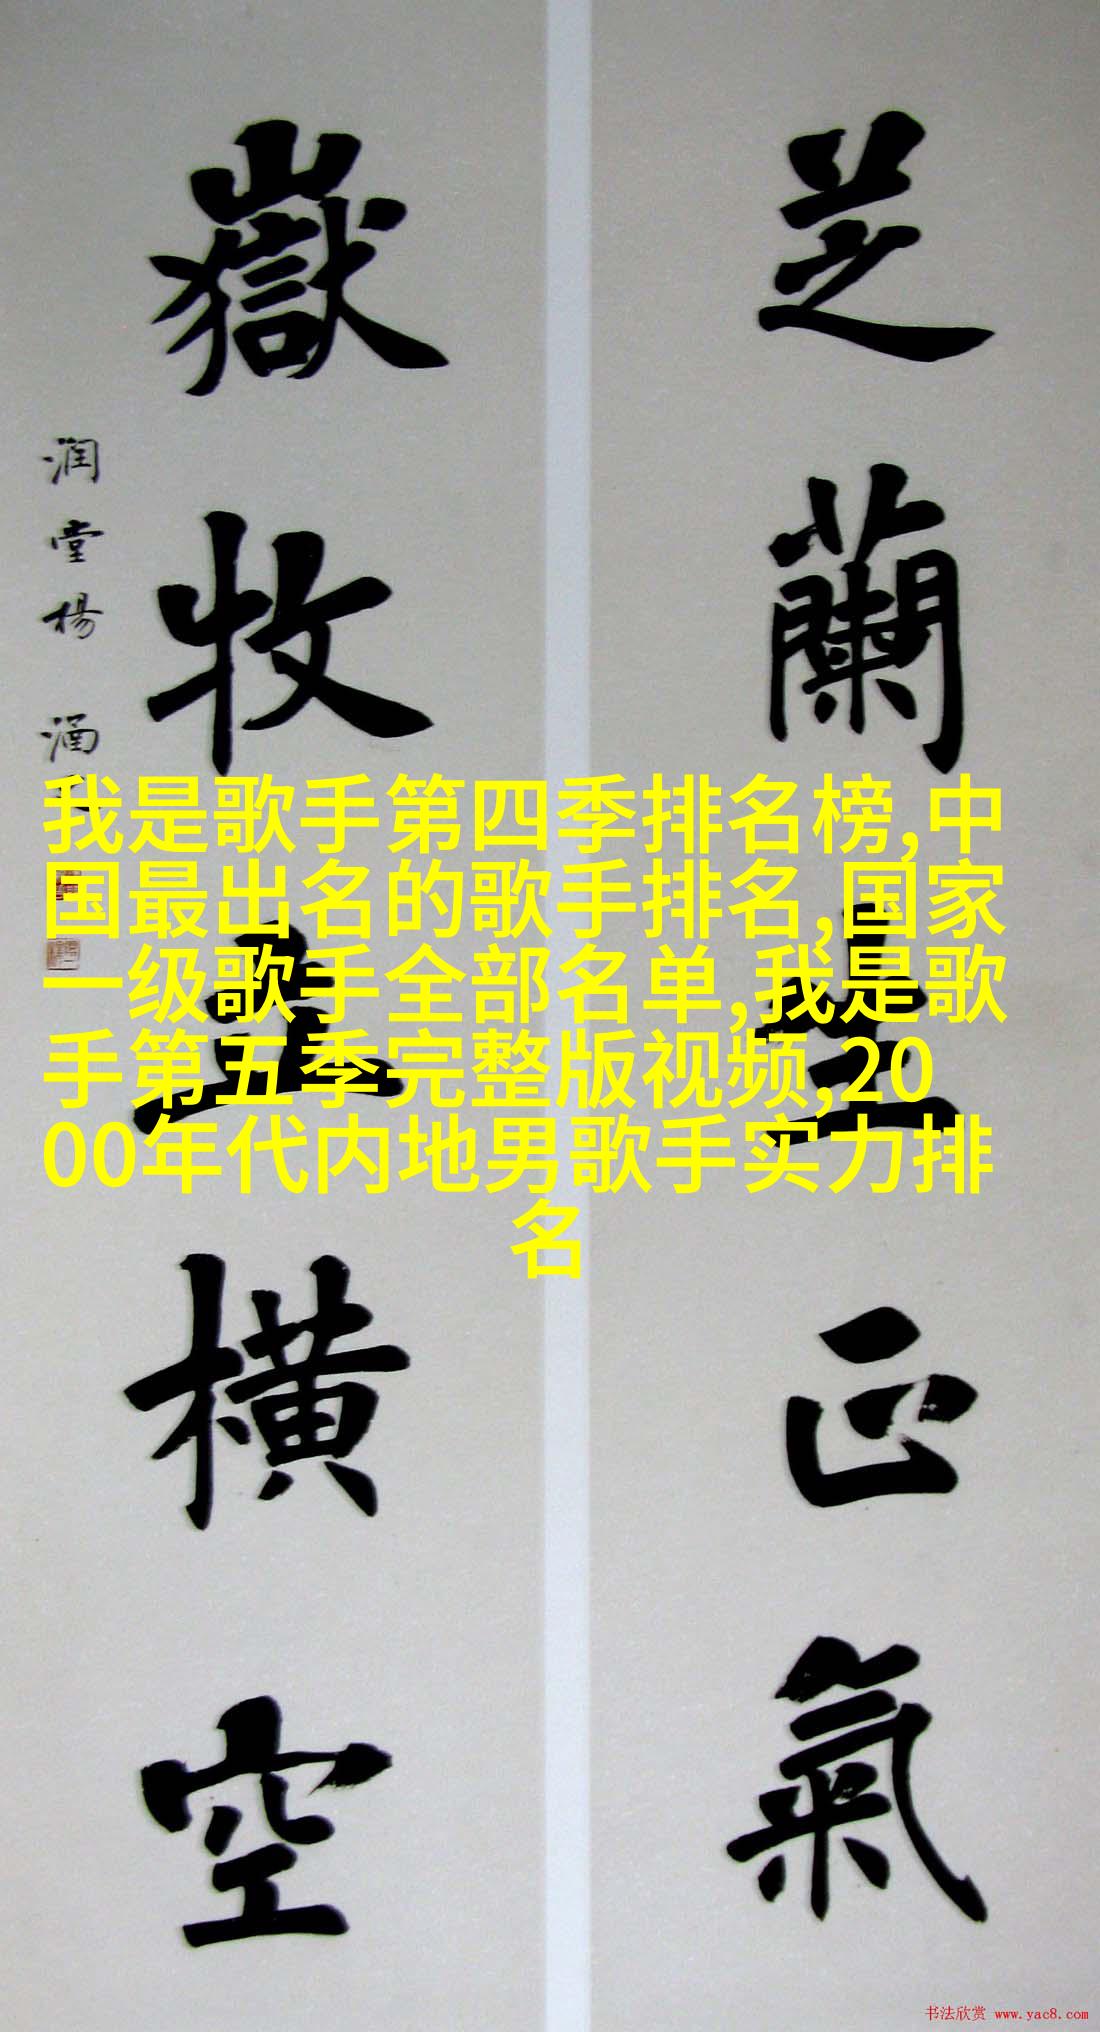 芝蘭生正氣
嶽牧橫空
润堂楊涵
我是歌手第四季排名榜,中
国最出名的歌手排名,国家
一级歌手全部名单,我是歌
手第五季完整版视频,20
00年代内地男歌手实力排
名
书法欣赏 www.yac8.com